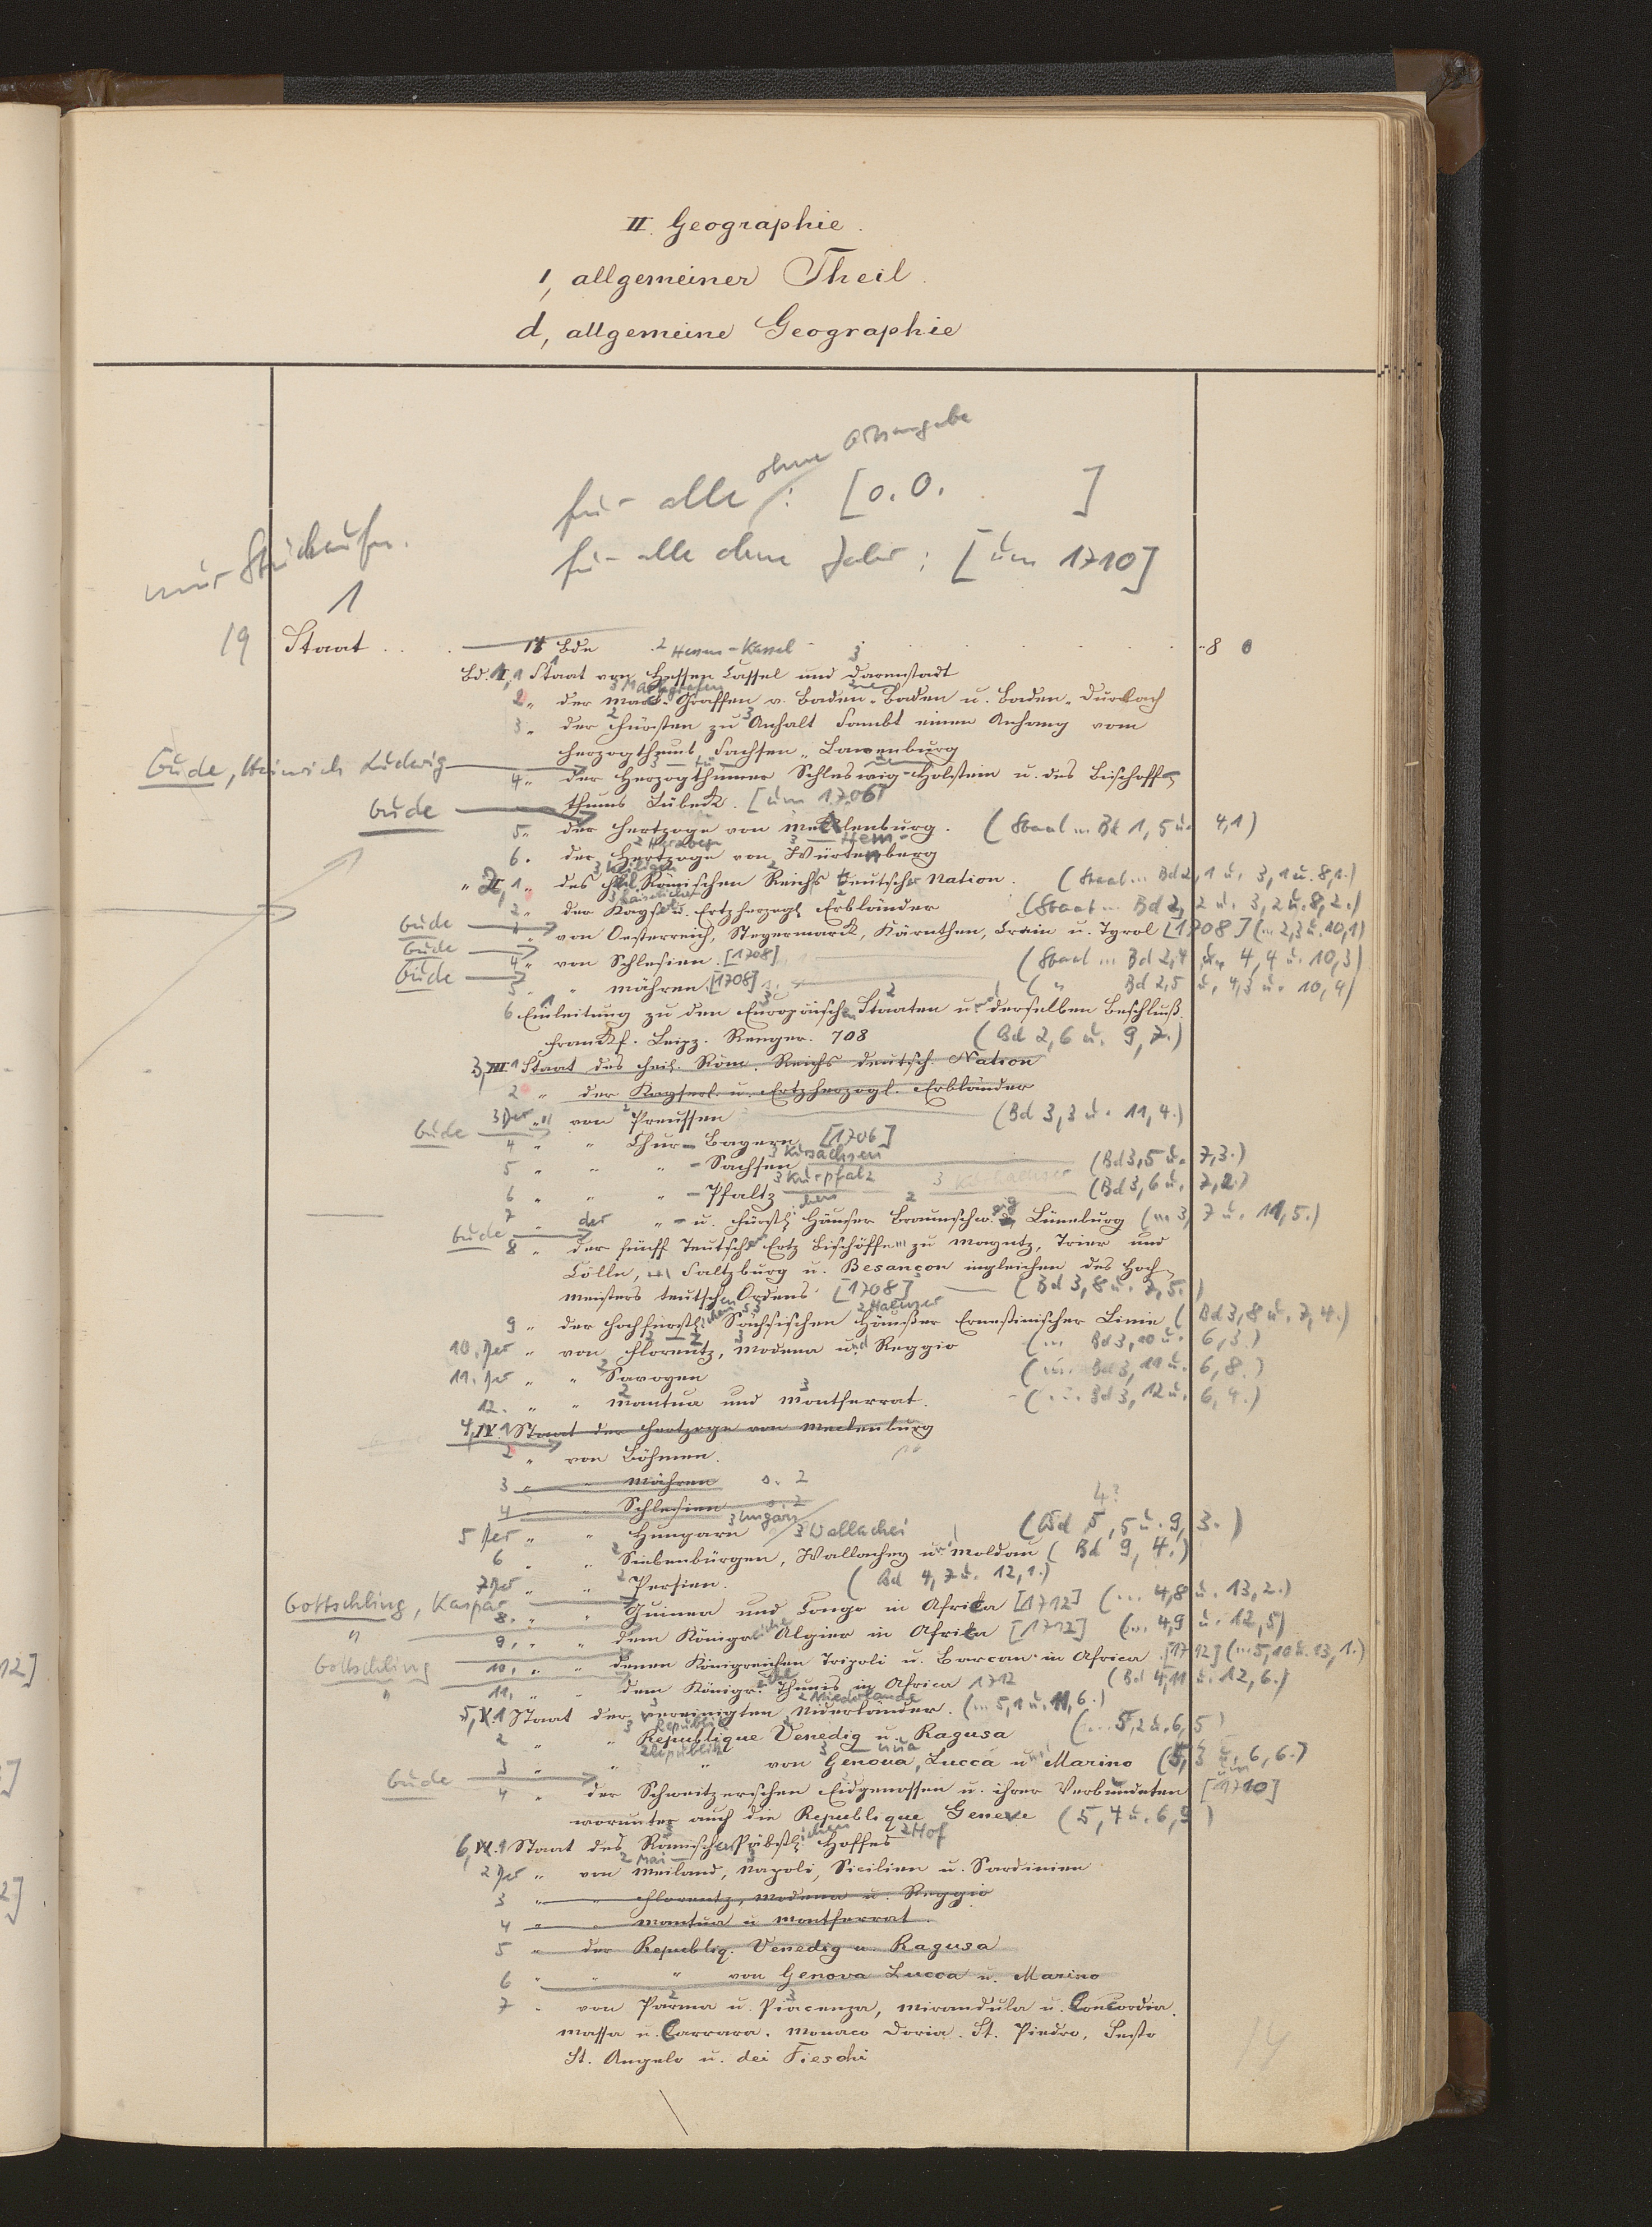 II. Geographie.
1, allgemeiner Theil.
d, allgemeine Geographie
für alle ohne Ortsangabe: [o. O. ]
für alle ohne Jahr: [um 1710]
1
19 Staat . . . 14 Bde 2 Hessen-Kassel 8 0
Bd. I, 1 Staat von Hessen Cassel und Darmstadt
2 " der Marck-Graffen v. Baden-Baden u. Baden-Durlach
3 " der Fürsten zu Anhalt sambt einem Anhang vom
Herzogthumb Sachsen-Lawenburg
Gude, Heinrich Ludwig 4 " der Herzogthümer Schleswig-Holstein u. des Bischoff-
Gude thums Lübeck. [um 1706]
5 " der Hertzoge von Mecklenburg. (Staat ... Bd 1, 5 u. 4,1)
6. der Hertzoge von Würtenberg
" II, 1 " des Heil. Römischen Reichs teutscher Nation. (Staat ... Bd 2, 1 u. 3, 1 u. 8,1.)
2 " der Kayserl. u. Ertzherzogl. Erbländer (Staat ... Bd 2, 2 u. 3, 2 u. 8, 2.)
Gude 3 " von Oesterreich, Steyermarck, Kärnthen, Crain u. Tyrol [1708] (... 2,3 u. 10,1)
Gude 4 " von Schlesien. [1708] (Staat ... Bd 2,4 u. 4,4 u. 10,3)
Gude 5 " " Mähren. [1708] ( " Bd 2,5 u. 4,3 u. 10,4)
6 Einleitung zu den Europäischen Staaten u. derselben Beschluß.
Franckf. Leipz. Renger. 708 (Bd 2,6 u. 9,7.)
3, III 1 Staat des Heil. Röm. Reichs deutsch. Nation
2 " der Kayserl. u. Ertzherzogl. Erbländer
3 Der " von Preussen (Bd 3,3 u. 11,4.)
Gude 4 " " Chur-Bayern [1706]
5 " " " -Sachsen 3 Kursachsen (Bd 3,5 u. 7,3.)
6 " " " -Pfaltz 3 Kurpfalz (Bd 3,6 u. 7,2)
7 " der " - u. Fürstl. Häuser Braunschw. u. Lüneburg (... 3, 7 u. 11,5.)
Gude 8 " der fünff Teutschen Ertz Bischöffen zu Mayntz, Trier und
Cölln, Saltzburg u. Besançon ingleichen des Hoch-
meisters teutschen Ordens [1708] (Bd 3,8 u. 7,5.)
9 " der Hochfürstl. Sächsischen Häußer Ernestinischer Linie (Bd 3,8 u. 7,4.)
10. Der " von Florentz, Modena und Reggio (... Bd 3,10 u. 6,3.)
11. Der " " Savoyen (... Bd 3,11 u. 6,8.)
12. " " Mantua und Montferrat. (... Bd 3,12 u. 6,4.)
4, IV. 1 Staat der Hertzoge von Meclenburg
2 " von Böhmen.
3 " " Mähren s. 2
4 " " Schlesien s. 2
5 Der " " Hungarn 3 Ungarn 3 Wallachei (Bd 5, 5 u. 9, 3.)
6 " " Siebenbürgen, Wallachey u. Moldau (Bd 9, 4.)
7 Der " " Persien. (Bd 4,7 u. 12,1.)
Gottschling, Kaspar 8. " " Guinea und Congo in Afrika [1712] (... 4,8 u. 13,2.)
" 9. " " dem Königreiche Algier in Afrika [1712] (... 4,9 u. 12,5)
Gottschling 10. " " denen Königreichen Tripoli u. Barcan in Africa [1712] (... 5,10 u. 13,1.)
" 11. " " dem Königr. Thunis in Africa 1712 (Bd 4,11 u. 12,6.)
5, V. 1 Staat der vereinigten Niderländer. (... 5,1 u. 11,6.)
2 " " Republique Venedig u. Ragusa (... 5,2 u. 6,5)
3 " " " von Genoua, Lucca u. Marino (5,3 u. 6,6.)
Gude 4 " der Schweitzerischen Eidgenossen u. ihrer Verbundeten [um 1710]
worunter auch die Republique Geneve (5,4 u. 6,9)
6, VI. 1 Staat des Römischen Päbstl. Hoffes 2 Hof
2 Der " von Meiland, Napoli, Sicilien u. Sardinien
3 " " Florentz, Modena u. Reggio
4 " " Mantua u. Montferrat.
5 " der Republiq. Venedig u. Ragusa
6 " " " von Genova Lucca u. Marino
7 " von Parma u. Piacenza, Mirandula u. Concordia.
Massa u. Carrara. Monaco Doria. St. Piedro, Sesto
St. Angelo u. dei Fieschi
14